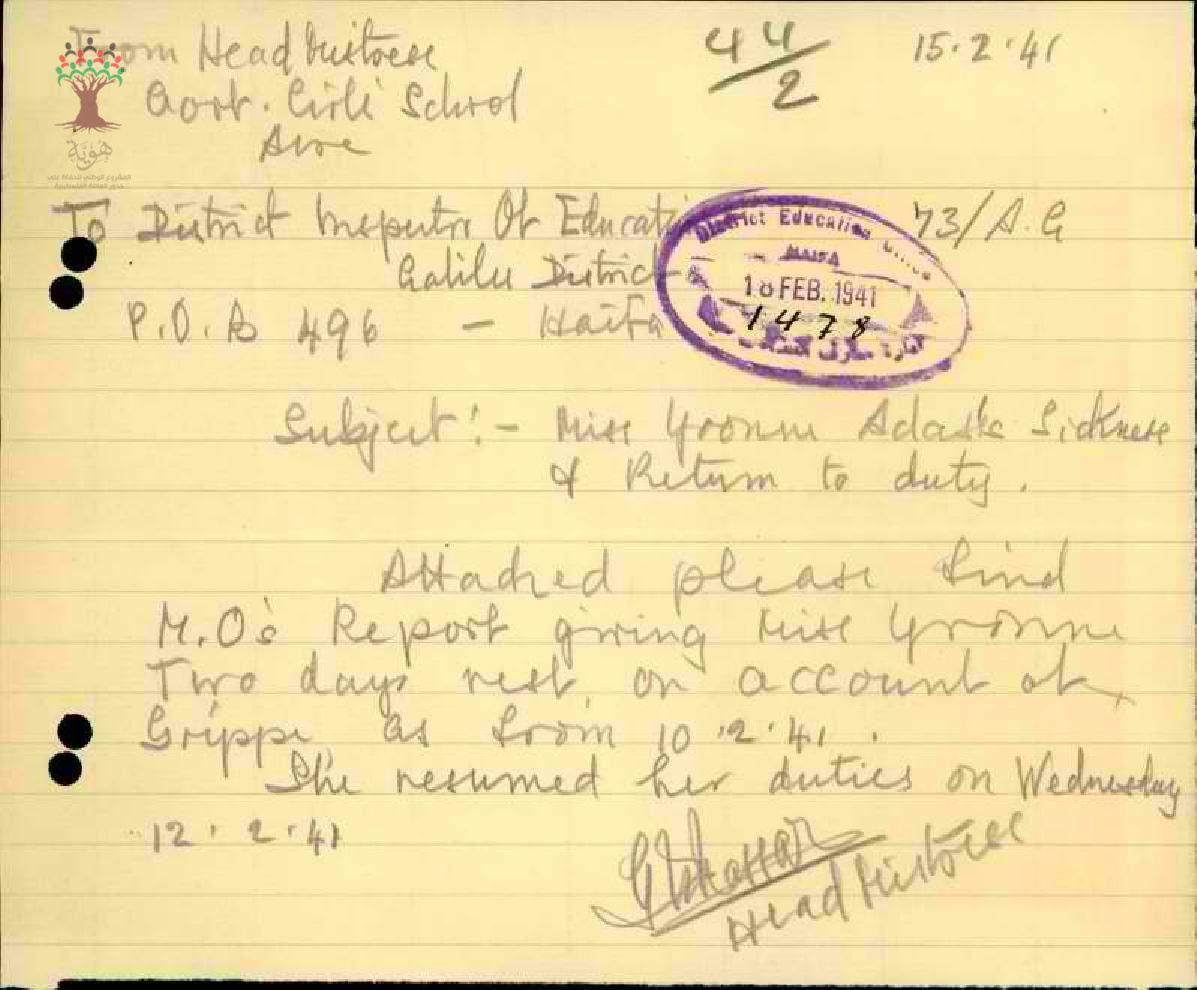 From Head Mistress
44/2
15.2.41
Govt. Girls' School
Acre
هوية
المشروع الوطني للحفاظ على
جذور العائلة الفلسطينية
To District Inspector Of Education
73/A.G
Galilee District
P.O.B 496 - Haifa
District Education Office
HAIFA
18 FEB. 1941
1478
Subject:- Miss Yvonne Adas's Sickness
& Return to duty.
Attached please find
M.O's Report giving Miss Yvonne
Two days rest, on account of,
Grippe, as from 10.2.41.
She resumed her duties on Wednesday
12.2.41
Head Mistress